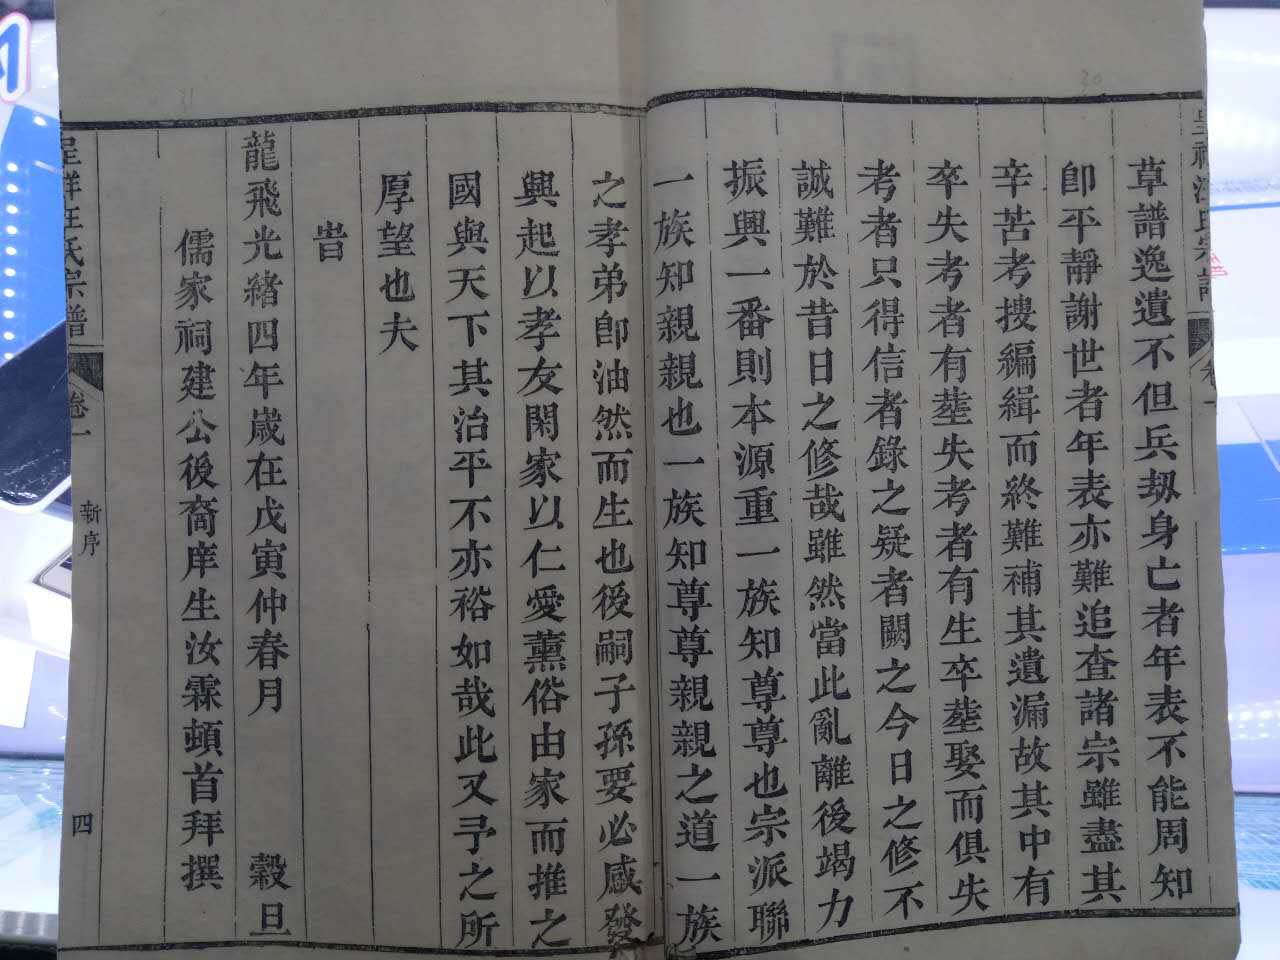 草譜逸遺不但兵刼身亡者年表不能周知
卽平靜謝世者年表亦難追查諸宗雖盡其
辛苦考搜編緝而終難補其遺漏故其中有
卒失考者有塟失考者有生卒塟娶而俱失
考者只得信者錄之疑者闕之今日之修不
誠難於昔日之修哉雖然當此亂離後竭力
振興一番則本源重一族知尊尊也宗派聯
一族知親親也一族知尊尊親親之道一族
之孝弟卽油然而生也後嗣子孫要必感發
興起以孝友閑家以仁愛薰俗由家而推之
國與天下其治平不亦裕如哉此又予之所
厚望也夫
旹
龍飛光緒四年歲在戊寅仲春月 穀旦
儒家祠建公後裔庠生汝霖頓首拜撰
呈祥汪氏宗譜 卷一 新序 四